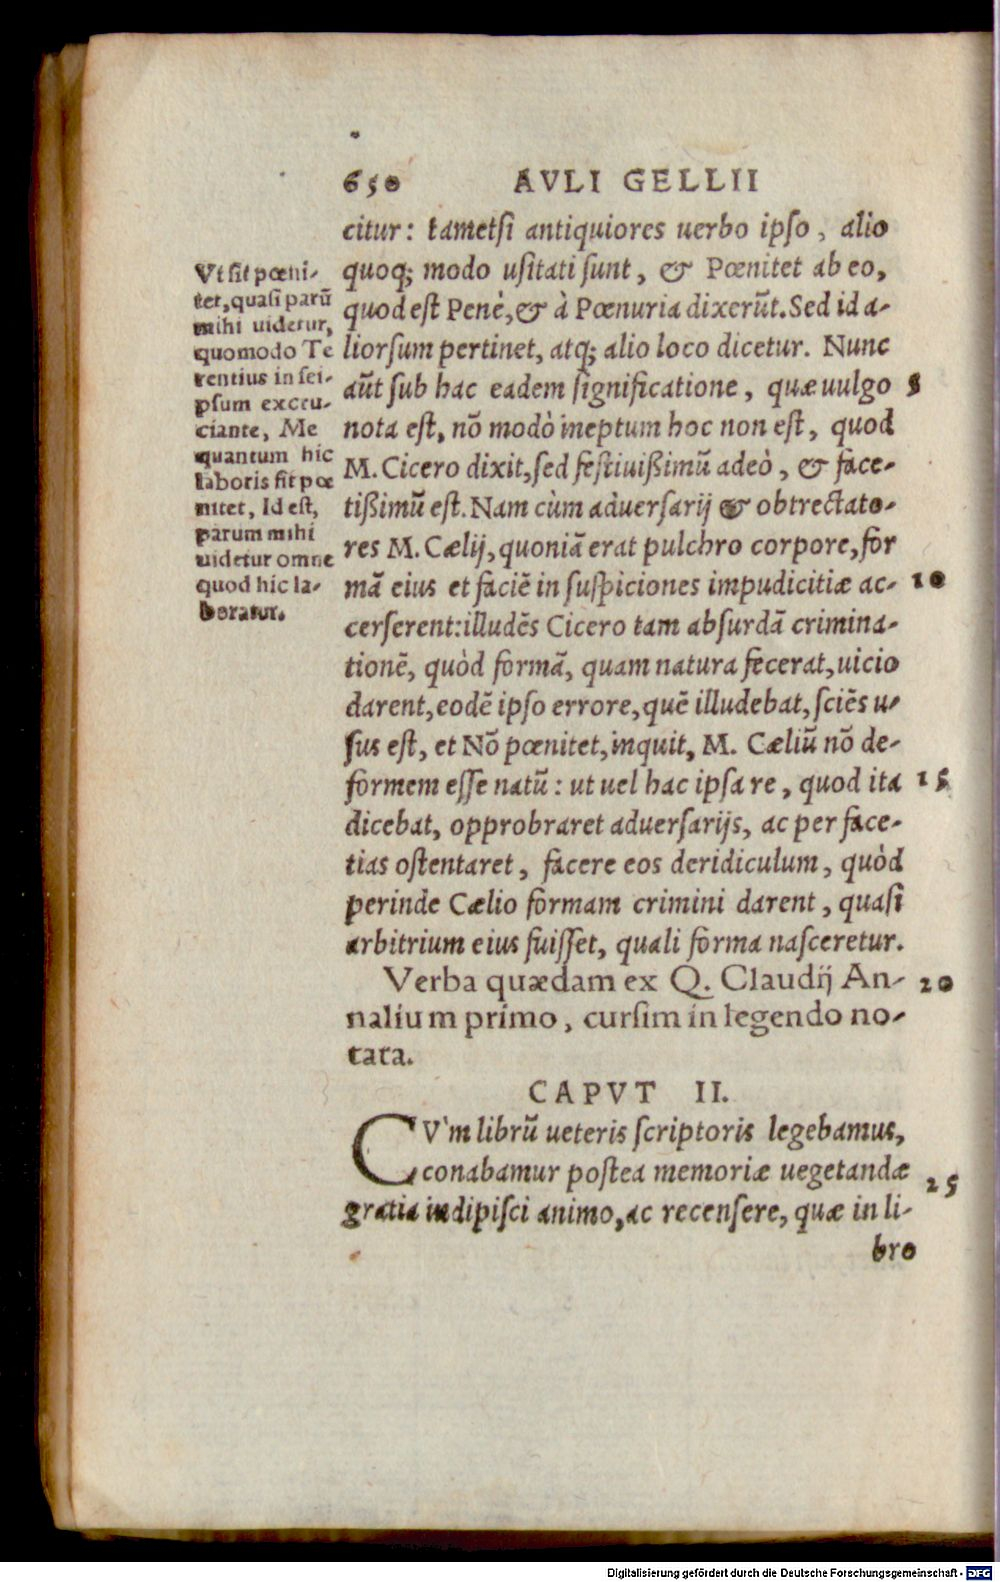 650 AVLI GELLII
citur: tametſi antiquiores uerbo ipſo, alio
quoq; modo uſitati ſunt, & Pœnitet ab eo,
quod eſt Penè, & à Pœnuria dixerūt. Sed id a-
liorſum pertinet, atq; alio loco dicetur. Nunc
aūt ſub hac eadem ſignificatione, quæ uulgo 5
nota eſt, nō modò ineptum hoc non eſt, quod
M. Cicero dixit, ſed feſtiuißimū adeò, & face-
tißimū eſt. Nam cùm aduerſarij & obtrectato-
res M. Cælij, quoniā erat pulchro corpore, for
mā eius et faciē in ſuſpiciones impudicitiæ ac- 10
cerſerent: illudēs Cicero tam abſurdā crimina-
tionē, quòd formā, quam natura fecerat, uicio
darent, eodē ipſo errore, quē illudebat, ſciēs u-
ſus eſt, et Nō pœnitet, inquit, M. Cæliū nō de-
formem eſſe natū: ut uel hac ipſa re, quod ita 15
dicebat, opprobraret aduerſarijs, ac per face-
tias oſtentaret, facere eos deridiculum, quòd
perinde Cælio formam crimini darent, quaſi
arbitrium eius fuiſſet, quali forma naſceretur.
Vt ſit pœni-
tet, quaſi parū
mihi uidetur,
quomodo Te
rentius in ſei-
pſum excru-
ciante, Me
quantum hic
laboris ſit pœ
nitet, Id eſt,
parum mihi
uidetur omne
quod hic la-
boratur.
Verba quædam ex Q. Claudij An- 20
nalium primo, curſim in legendo no-
tata.
CAPVT II.
CV̀m librū ueteris ſcriptoris legebamus,
conabamur poſtea memoriæ uegetandæ 25
gratia indipiſci animo, ac recenſere, quæ in li-
bro
Digitalisierung gefördert durch die Deutsche Forschungsgemeinschaft - DFG